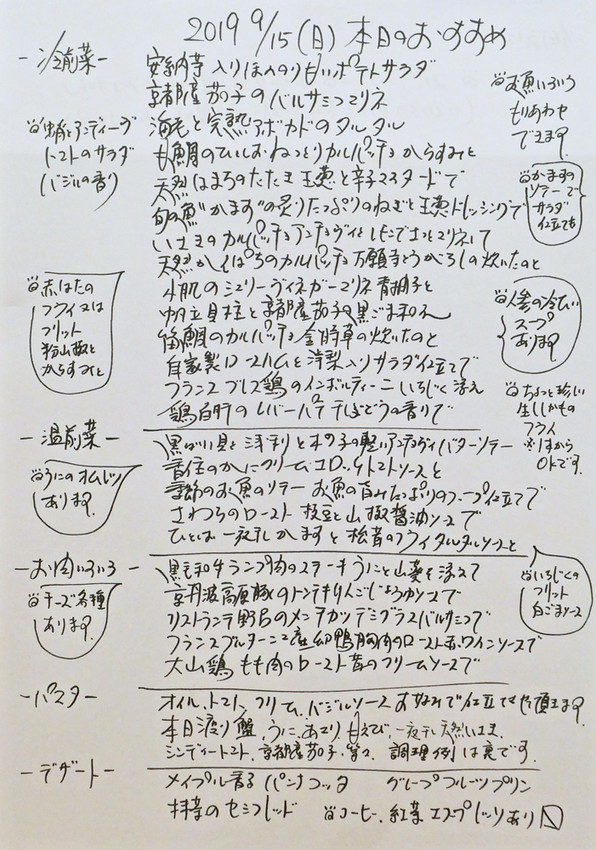 2019 9/15(日)本日のおすすめ
-冷前菜-
安納芋入りほんのり甘いポテトサラダ
京都産茄子のバルサミコマリネ
海老と完熟アボカドのタルタル
甘鯛のひらしおねっとりカルパッチョ からすみと
天然はまちのたたき 玉葱と辛子マスタードで
旬の魚"かます"の炙り たっぷりのねぎと玉葱ドレッシングで
いさきのカルパッチョ アンチョヴィと
天然かんぱちのカルパッチョ 万願寺とうがらしの炊いたのと
〆鯖のシェリーヴィネガーマリネ 青柚子と
帆立貝柱と京都産茄子の黒ごま和え
笛鯛のカルパッチョ 金時草の炊いたのと
自家製ロースハムと洋梨入りサラダ仕立て
フランス ブレス鶏のインボルティーニ いちじく添え
鶏白肝のレバーパテ ぶどうの香りで
生ハムとアンディーブ
トマトのサラダ
バジルの香り
赤はたの
フライ又は
フリット
粉山椒と
からすみと
お魚いろいろ
もりあわせ
できます
かますの
ソテーで
サラダ
仕立ても
人参の冷たい
スープ
あります
ちょっと珍しい
生ししゃもの
フライ
※1本から
OKです。
-温前菜-
黒ばい貝と浅利と木の子の軽いアンチョヴィバターソテー
香住のかにクリームコロッケ トマトソースと
季節のお魚のソテー お魚の旨みたっぷりのスープ仕立てで
さわらのロースト 枝豆と山椒醤油ソースで
ひとしお一夜干しかますと松茸のフライ タルタルソースと
うにのオムレツ
あります
-お肉いろいろ-
黒毛和牛ランプ肉のステーキ うにと山葵を添えて
京丹波高原豚のトンテキ りんごじょうゆソースで
リストランテ野呂のメンチカツ デミグラスバルサミコで
フランス ブルターニュ産 幼鴨胸肉のロースト 赤ワインソースで
大山鶏もも肉のロースト 茸のクリームソースで
チーズ各種
あります
いちじくの
フリット
白ごまソース
-パスタ-
オイル、トマト、クリーム、バジルソース お好みで仕立てさせて頂きます
本日渡り蟹、うに、あさり、甘えび、一夜干し天然いさき、
シンディートマト、京都産茄子、等々 調理例は裏です。
-デザート-
メイプル香る パンナコッタ グレープフルーツプリン
抹茶のセミフレッド コーヒー、紅茶 エスプレッソあり